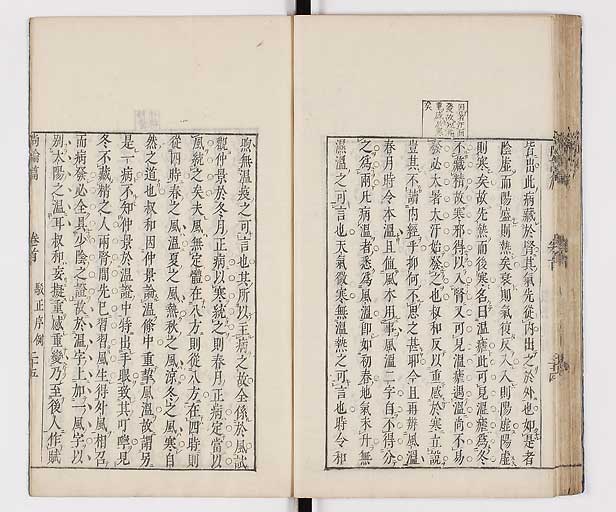 皆出此病藏於腎其氣先從內出之於外也如是者
陰虛而陽盛則熱矣衰則氣復反入入則陽虛陽虛
則寒矣故先熱而後寒名曰溫瘧此可見溫瘧爲冬
不藏精故寒邪得以入腎又可見溫瘧遇溫尚不易
發必大暑大汗始發之也叔和反以重感於寒立說
豈其不讀內經乎抑何不思之甚耶今且再辨風溫
春月時令本溫且值風木用事風溫二字自不得分
之爲兩凡病溫者悉爲風溫即如初春地氣未升無
濕溫之可言也天氣微寒無溫熱之可言也時令和
煦無溫疫之可言也其所以主病之故全係於風試
觀仲景於冬月正病以寒統之則春月正病定當以
風統之矣夫風無定體在八方則從八方在四時則
從四時春之風溫夏之風熱秋之風涼冬之風寒自
然之道也叔和因仲景論溫條中重挈風溫故謂另
是一病不知仲景於溫證中特出手眼致其叮嚀見
冬不藏精之人兩腎間先已習習風生得外風相召
而病發必全具少陰之證故於溫字上加一風字以
別太陽之溫耳叔和妄擬重感重變乃至後人作賦
尚論篇 卷首 駁正序例 二十五